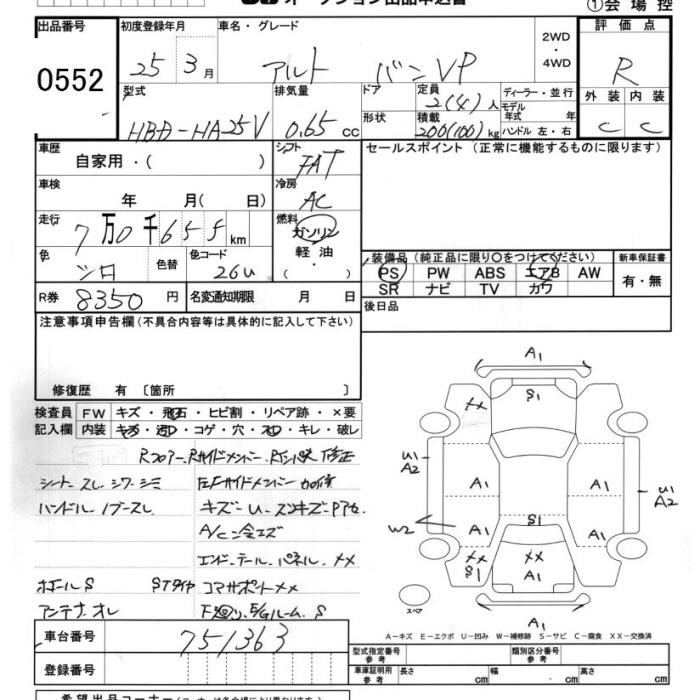 ①会場控
出品番号 初度登録年月 車名・グレード 2WD・4WD 評価点
0552 25 3月 アルト バンVP R
型式 排気量 ドア 定員 ディーラー・並行 外装 内装
HBD-HA25V 0.65cc 2(4)人 モデル年式 年 C C
形状 積載 200(100)kg ハンドル 左・右
車歴 シフト セールスポイント (正常に機能するものに限ります)
自家用・( ) FAT
車検 冷房
年 月( 日) AC
走行 燃料
7万0千655km ガソリン
色 色替 色コード 軽油 装備品(純正品に限り○をつけてください) 新車保証書
シロ 26U ・( ) PS PW ABS エアB AW 有・無
R券 8350円 名変通知期限 月 日 SR ナビ TV カワ
後日品
注意事項申告欄(不具合内容等は具体的に記入して下さい)
修復歴 有 〔箇所 〕
検査員 FW キズ・飛石・ヒビ割・リペア跡・×要
記入欄 内装 キズ・汚レ・コゲ・穴・スレ・キレ・破レ
Rフロアー、Rサイドメンバー、Rインパネ 修正
シート スレ シワ シミ
ハンドル ノブ スレ キズ
エンド、テール、パネル、××
ホイールS STタイヤ コアサポート××
アンテナ オレ 下廻り、E/Gルーム S
A1
S1
××
U1
A2
A1
A1
U1
A2
S1
W2
A1
A1
××
S1
××
A1
スペア
A1
A-キズ E-エクボ U-凹み W-補修跡 S-サビ C-腐食 XX-交換済
車台番号 751363
型式指定番号 参考 類別区分番号 参考
登録番号 車庫証明用 参考 長さ cm 幅 cm 高さ cm
希望出品コーナー